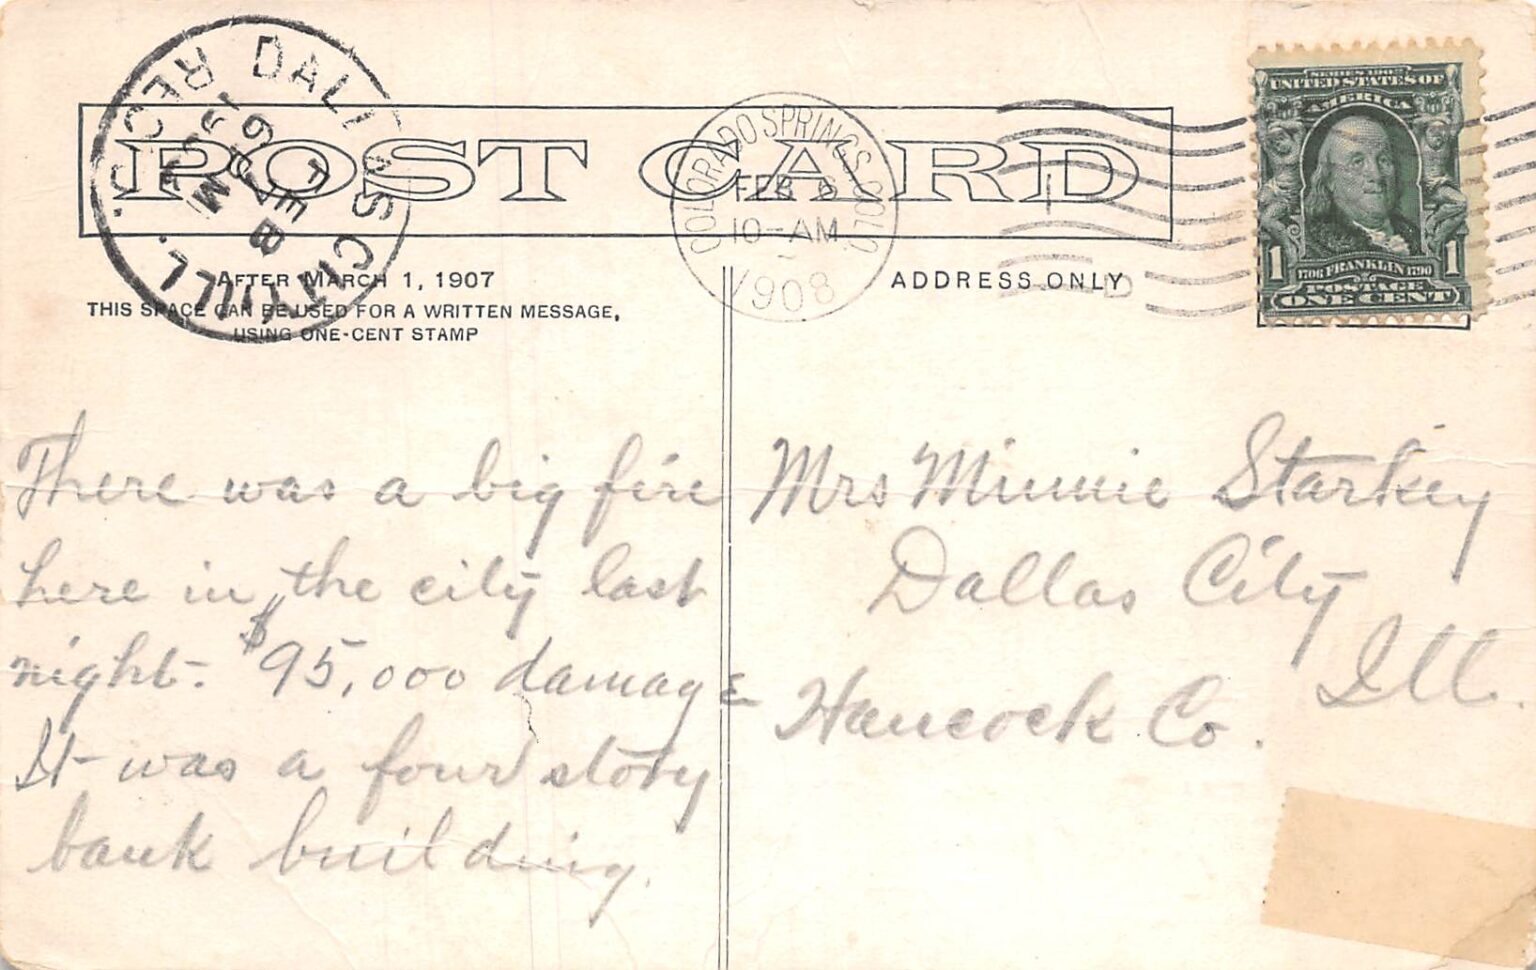 POST CARD
AFTER MARCH 1, 1907
THIS SPACE CAN BE USED FOR A WRITTEN MESSAGE,
USING ONE-CENT STAMP
ADDRESS ONLY
DALLAS CITY, ILL.
REC'D.
FEB
M
COLORADO SPRINGS, COLO.
FEB 6
10-AM
1908
SERIES 1902
UNITED STATES OF
AMERICA
1 1
1706 FRANKLIN 1790
POSTAGE
ONE CENT
There was a big fire
here in the city last
night. $95,000 damage
It was a four story
bank building.
Mrs Minnie Starkey
Dallas City
Ill.
Hancock Co.